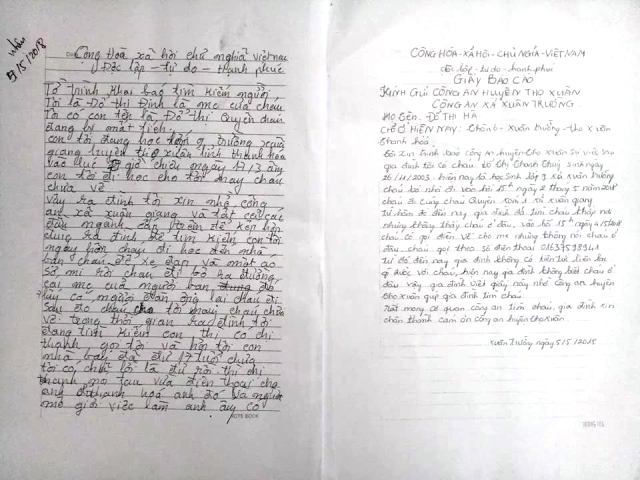 nhận
5/5/2018
Cộng Hoà xã hội chủ nghĩa việt nam
Độc lập - tự do - hạnh phúc
Tờ trình khai báo tìm kiếm người
Tôi là Đỗ thị Định là mẹ của cháu
Tôi có con tên là Đỗ thị Quyên cháu
đang bị mất tích.
con tôi đang học lớp 9 trường xuân
giang huyện thọ xuân tỉnh thanh hóa
vào lúc giờ chiều ngày
con tôi đi học cho tới nay cháu
chưa về
vậy gia đình tôi xin nhờ công
an xã xuân giang và tất cả các
giúp gia đình để tìm kiếm con tôi
ngày hôm cháu đi học đến nhà
bạn cháu để xe đạp và một áo
sơ mi rồi cháu đi bộ ra đường
cái mẹ của người bạn
thấy có người đàn ông lại cháu đi
sau đó cháu cho tới nay cháu chưa
về. trong thời gian gia đình tôi
đang tìm kiếm con thì có chị
thanh gọi tới và hỏi tôi con
nhà bạn đã đủ 17 tuổi chưa
tôi có trả lời là đủ rồi thì chị
thanh mới điện thoại cho
anh ở thanh hoá anh đó là người
mô giới việc làm anh ấy có
NOTE BOOK
CỘNG HÓA - XÃ HỘI - CHỦ NGHĨA - VIỆT NAM
độc lập - tự do - hạnh phúc
GIẤY BÁO CÁO
KÍNH GỬI CÔNG AN HUYỆN THỌ XUÂN
CÔNG AN XÃ XUÂN TRƯỜNG
MẸ TÊN: ĐỖ THỊ HÀ
CHỖ Ở HIỆN NAY: Thôn 6 - Xuân Trường - Thọ Xuân
thanh hóa
Tôi xin trình báo công an huyện Thọ Xuân sự việc sau
gia đình tôi có cháu Đỗ Thị Thanh Thuỷ sinh ngày
20/11/2003. hiện nay là học sinh lớp 9 xã Xuân Trường
cháu bỏ nhà đi vào hồi 15h ngày 2 tháng 5 năm 2018
cháu đi cùng cháu Quyên xóm 1 xã xuân giang
từ hôm đó đến nay, gia đình đã tìm cháu khắp nơi
nhưng không thấy cháu ở đâu, vào hồi 15h ngày 4/5/2018
cháu có gọi điện về cho mẹ nhưng không nói cháu ở
đâu cháu gọi theo số điện thoại 01637598941
từ đó đến nay gia đình không có liên lạc
gì được với cháu, hiện nay gia đình không biết cháu ở
đâu vậy gia đình viết giấy này nhờ công an huyện
thọ xuân giúp gia đình tìm cháu.
Rất mong cơ quan công an tìm cháu, gia đình xin
chân thành cảm ơn công an huyện thọ xuân.
Xuân Trường ngày 5/5/2018